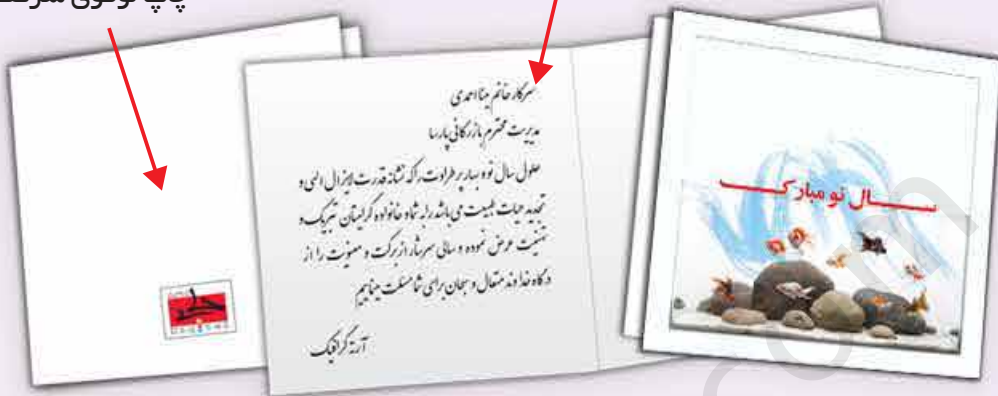 چاپ لوگوی شرکت
سرکار خانم مینا احمدی
مدیریت محترم بازرگانی پارسا
حلول سال نو و بهار پر طراوت را که نشانه قدرت لایزال الهی و
تجدید حیات طبیعت می باشد را به شما و خانواده گرامیتان تبریک و
تهنیت عرض نموده و سالی سرشار از برکت و معنویت را از
درگاه خداوند متعال و سبحان برای شما مسئلت مینماییم
گرافیک
سال نو مبارک
com